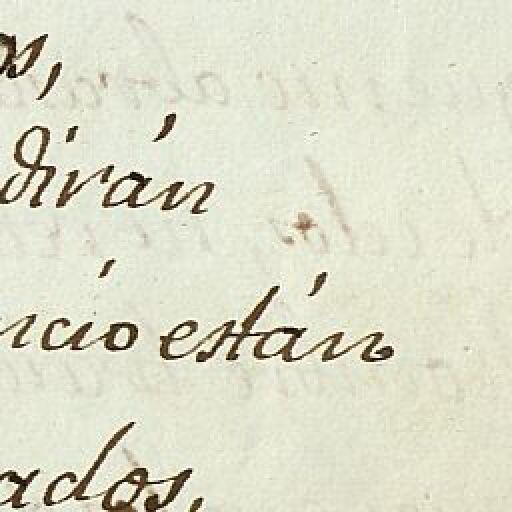 os,
dirán
ncio están
ados,